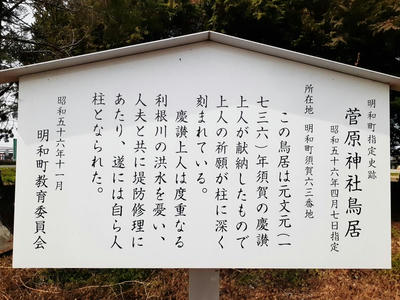 明和町指定史跡
菅原神社鳥居
昭和五十六年四月七日指定
所在地 明和町須賀六三番地
この鳥居は元文元(一
七三六)年須賀の慶讃
上人が献納したもので
上人の祈願が柱に深く
刻まれている。
慶讃上人は度重なる
利根川の洪水を憂い、
人夫と共に堤防修理に
あたり、遂には自ら人
柱となられた。
昭和五十六年十一月
明和町教育委員会